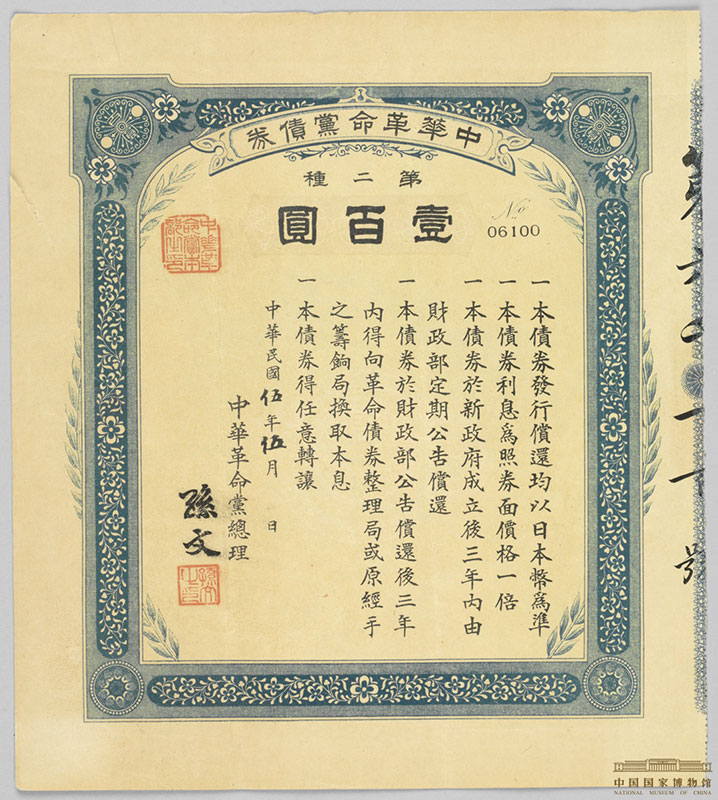 中華革命黨債券
第二種
壹百圓
No 06100
一本債券發行償還均以日本幣爲準
一本債券利息爲照券面價格一倍
一本債券於新政府成立後三年內由
財政部定期公告償還
一本債券於財政部公告償還後三年
內得向革命債券整理局或原經手
之籌餉局換取本息
一本債券得任意轉讓
中華民國伍年伍月 日
中華革命黨總理
孫文
中華革命黨本部之印
孫文之印
中国国家博物馆
NATIONAL MUSEUM OF CHINA